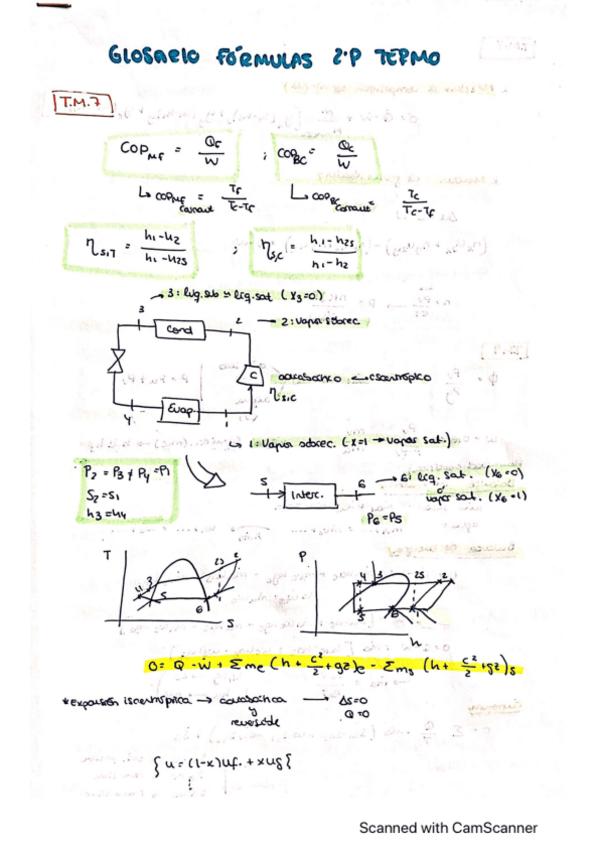 GLOSARIO FÓRMULAS 2ºP TERMO
T.M.7
COP_MF = Q_F / W ; COP_BC = Q_C / W
↳ COP_MF Carnot = T_F / T_C-T_F
↳ COP_BC Carnot = T_C / T_C-T_F
η_S,T = h1-h2 / h1-h2S ; η_S,C = h1-h2S / h1-h2
→ 3: líq. sub ≈ líq. sat (X3=0)
3
2 → 2: vapor sobrec.
Cond
C
adiabático ← isentrópico
η_S,C
Evap.
4
1
↳ 1: Vapor sobrec. (x=1 → vapor sat.)
P2 = P3 ≠ P4 = P1
S2 = S1
h3 = h4
5
Interc.
6 → 6: líq. sat. (X6=0)
o
vapor sat. (X6=1)
P6 = P5
T
4
3
5
6
2S
2
S
P
4
3
2S
2
5
h
0 = Q̇ - Ẇ + Σme (h + c²/2 + gz)e - Σms (h + c²/2 + gz)s
*expansión isentrópica → adiabática → ΔS=0
y
reversible
Q=0
{ u = (1-x)uf. + xug {
⋮
Scanned with CamScanner